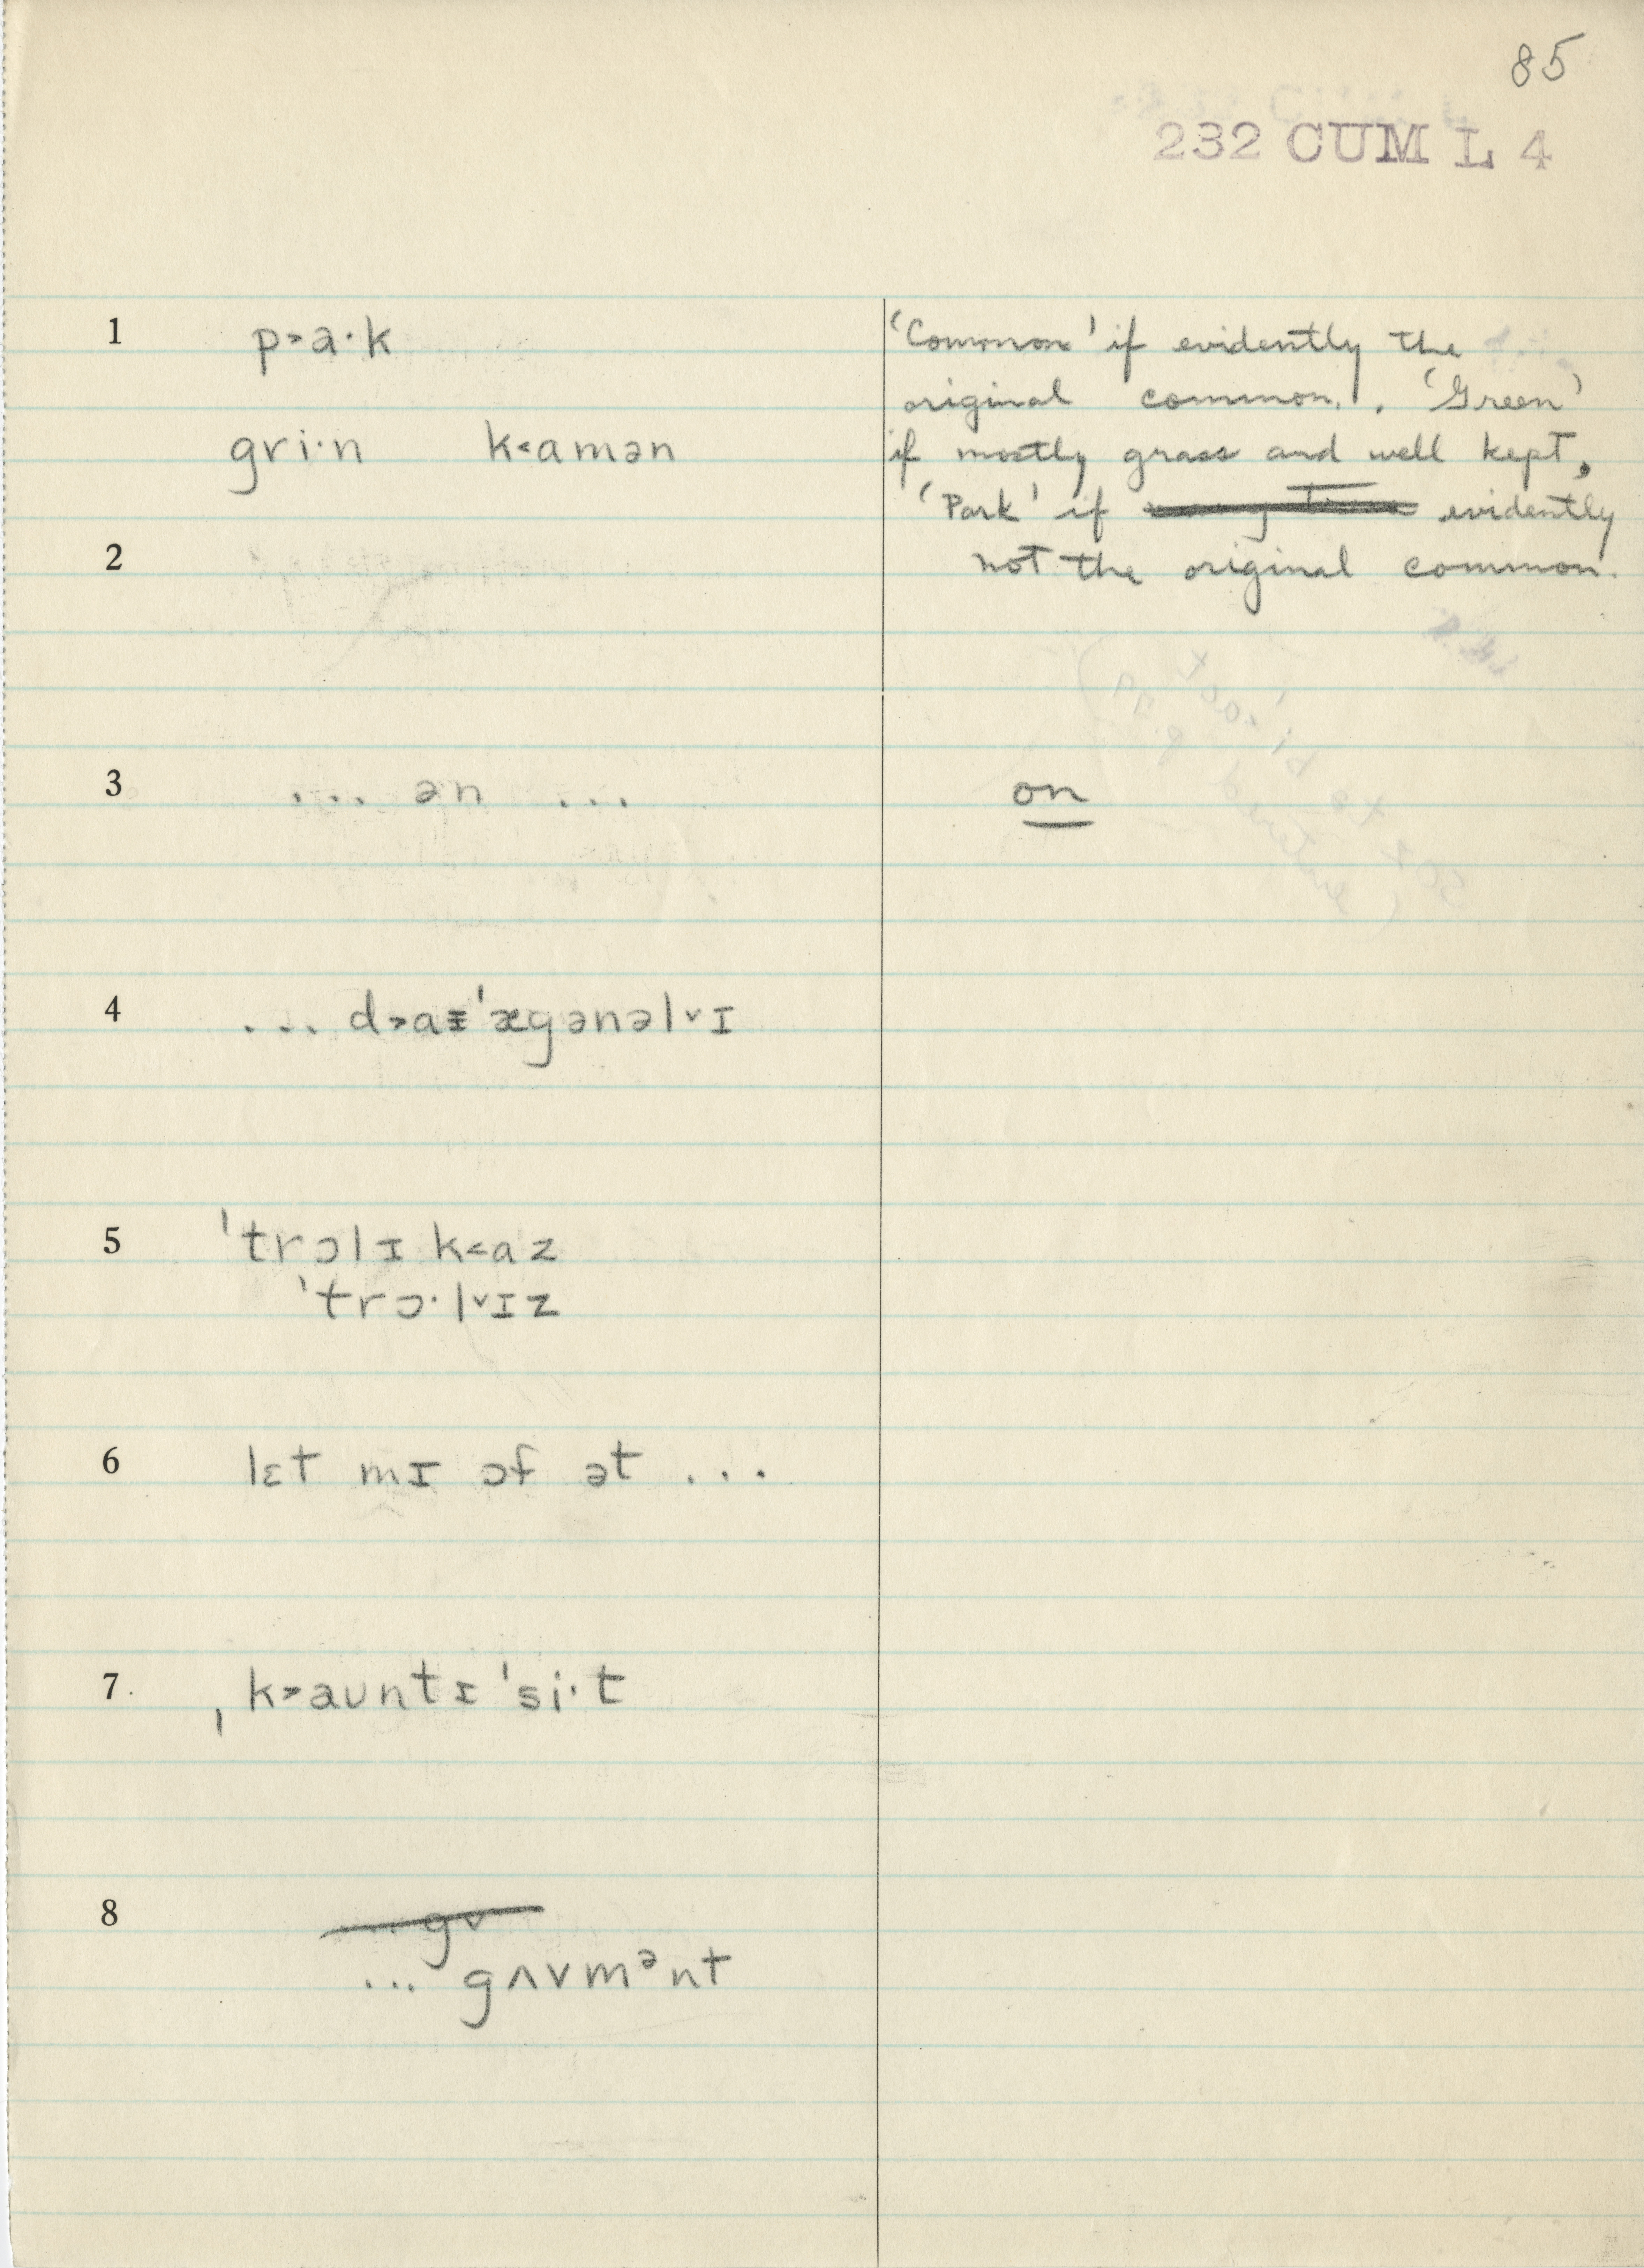 85
232 CUM L 4
1 p˃a·k
gri·n k˂amən
'Common' if evidently the
original common. 'Green'
if mostly grass and well kept,
'Park' if evidently
not the original common.
2
3 ... ən ... on
4 ... d˃aɪˈægənəl˅ɪ
5 ˈtrɔlɪ k˂az
ˈtrɔ·l˅ɪz
6 lɛt mɪ ɔf ət ...
7. ˌk˃aʊntɪˈsi·t
8 gv
... gʌvmᵊnt